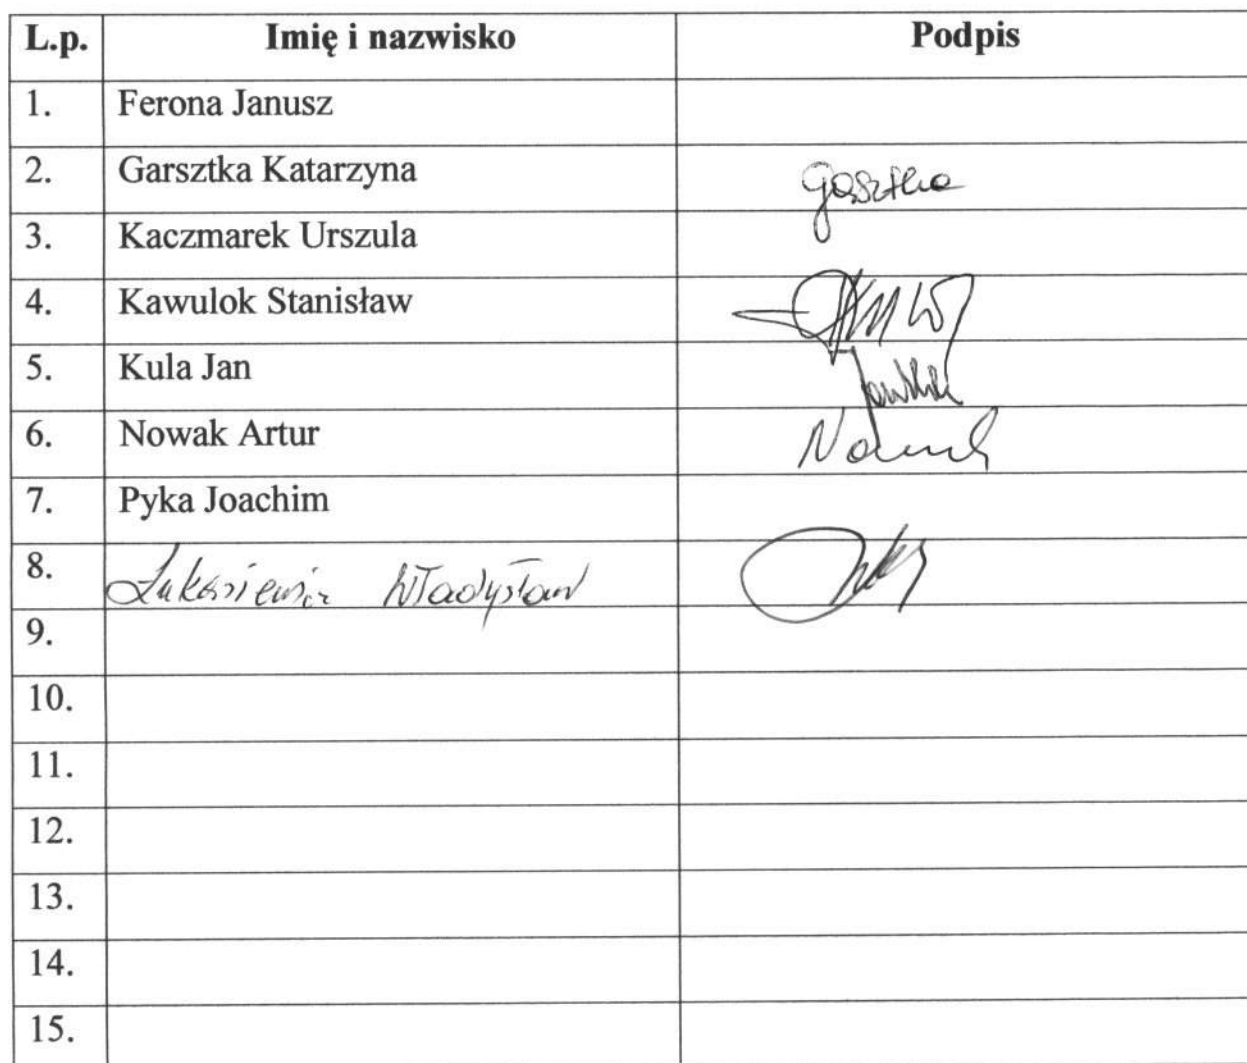 L.p. Imię i nazwisko Podpis
1. Ferona Janusz
2. Garsztka Katarzyna
3. Kaczmarek Urszula
4. Kawulok Stanisław
5. Kula Jan
6. Nowak Artur Nowak
7. Pyka Joachim
8. Łukasiewicz Władysław
9.
10.
11.
12.
13.
14.
15.